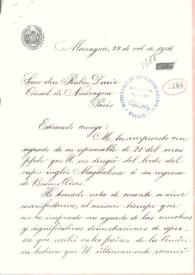 Managua, 24 de oct. de 1906
1288
Señor don Rubén Darío
Cónsul de Nicaragua
París
Estimado amigo:
Me he impuesto con
agrado de su apreciable de 21 del mes
ppdo. que U. me dirigió del bordo del
vapor inglés Magdalena á su regreso
de Buenos Aires.
He tomado nota de cuanto se sirve
manifestarme, al mismo tiempo que
me he impuesto con agrado de las muchas
y significativas demostraciones de apre-
cio que recibió en los países de la Améri-
ca latina que U. últimamente recorrió